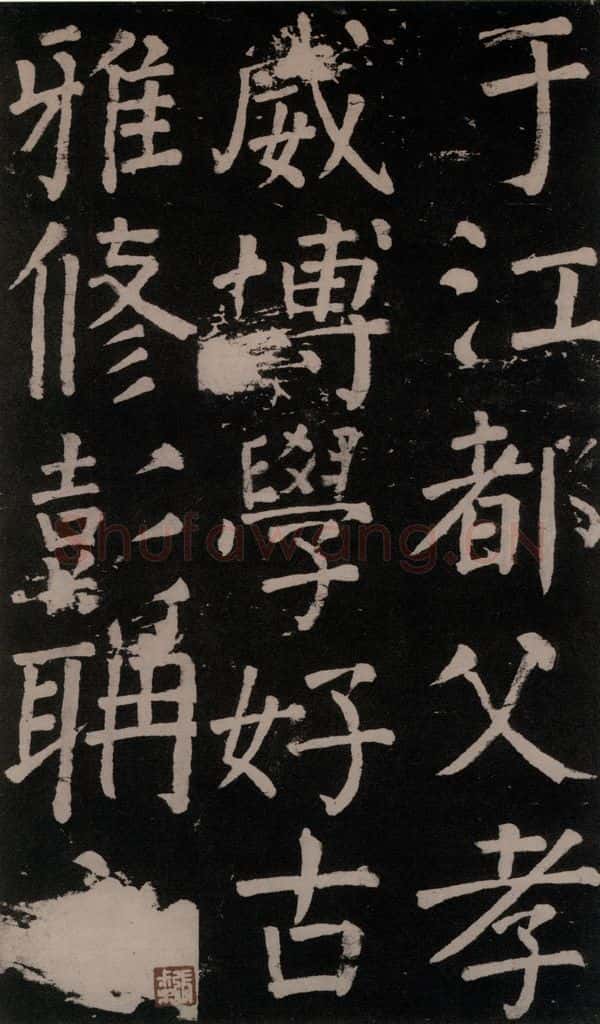 于江都父孝
威博學好古
雅修彭耼
Shufawang.CN